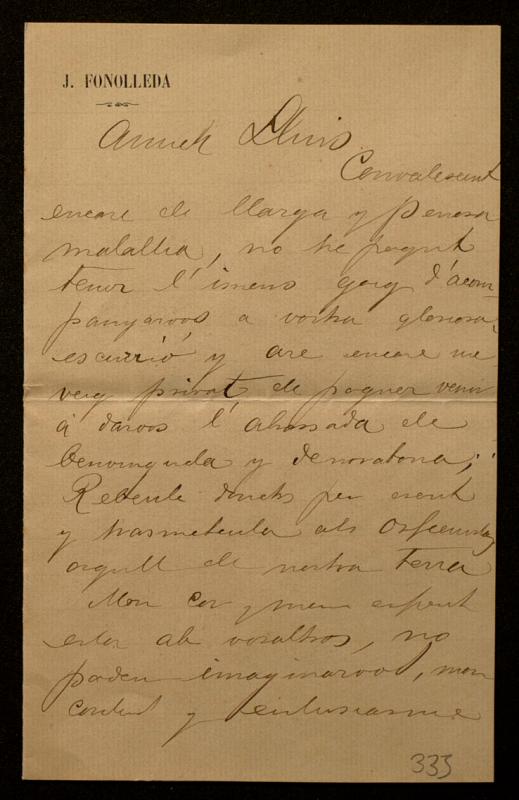 J. FONOLLEDA
Amich Lluis
Convalescent
encare de llarga y penosa
malaltia, no he pogut
tenir l'imens goig d'acom-
panyarvos á vostra gloriosa
escurció, y are encare me
veig privat de poguer venir
á darvos l'abrassada de
benvinguda y
Rebeula donchs per escrit
y trasmeteula als Orfeonistas
orgull de nostra terra
Mon cor y mon esperit
estan ab vosaltres, no
podeu imaginarvos, mon
content y entusiasme
335